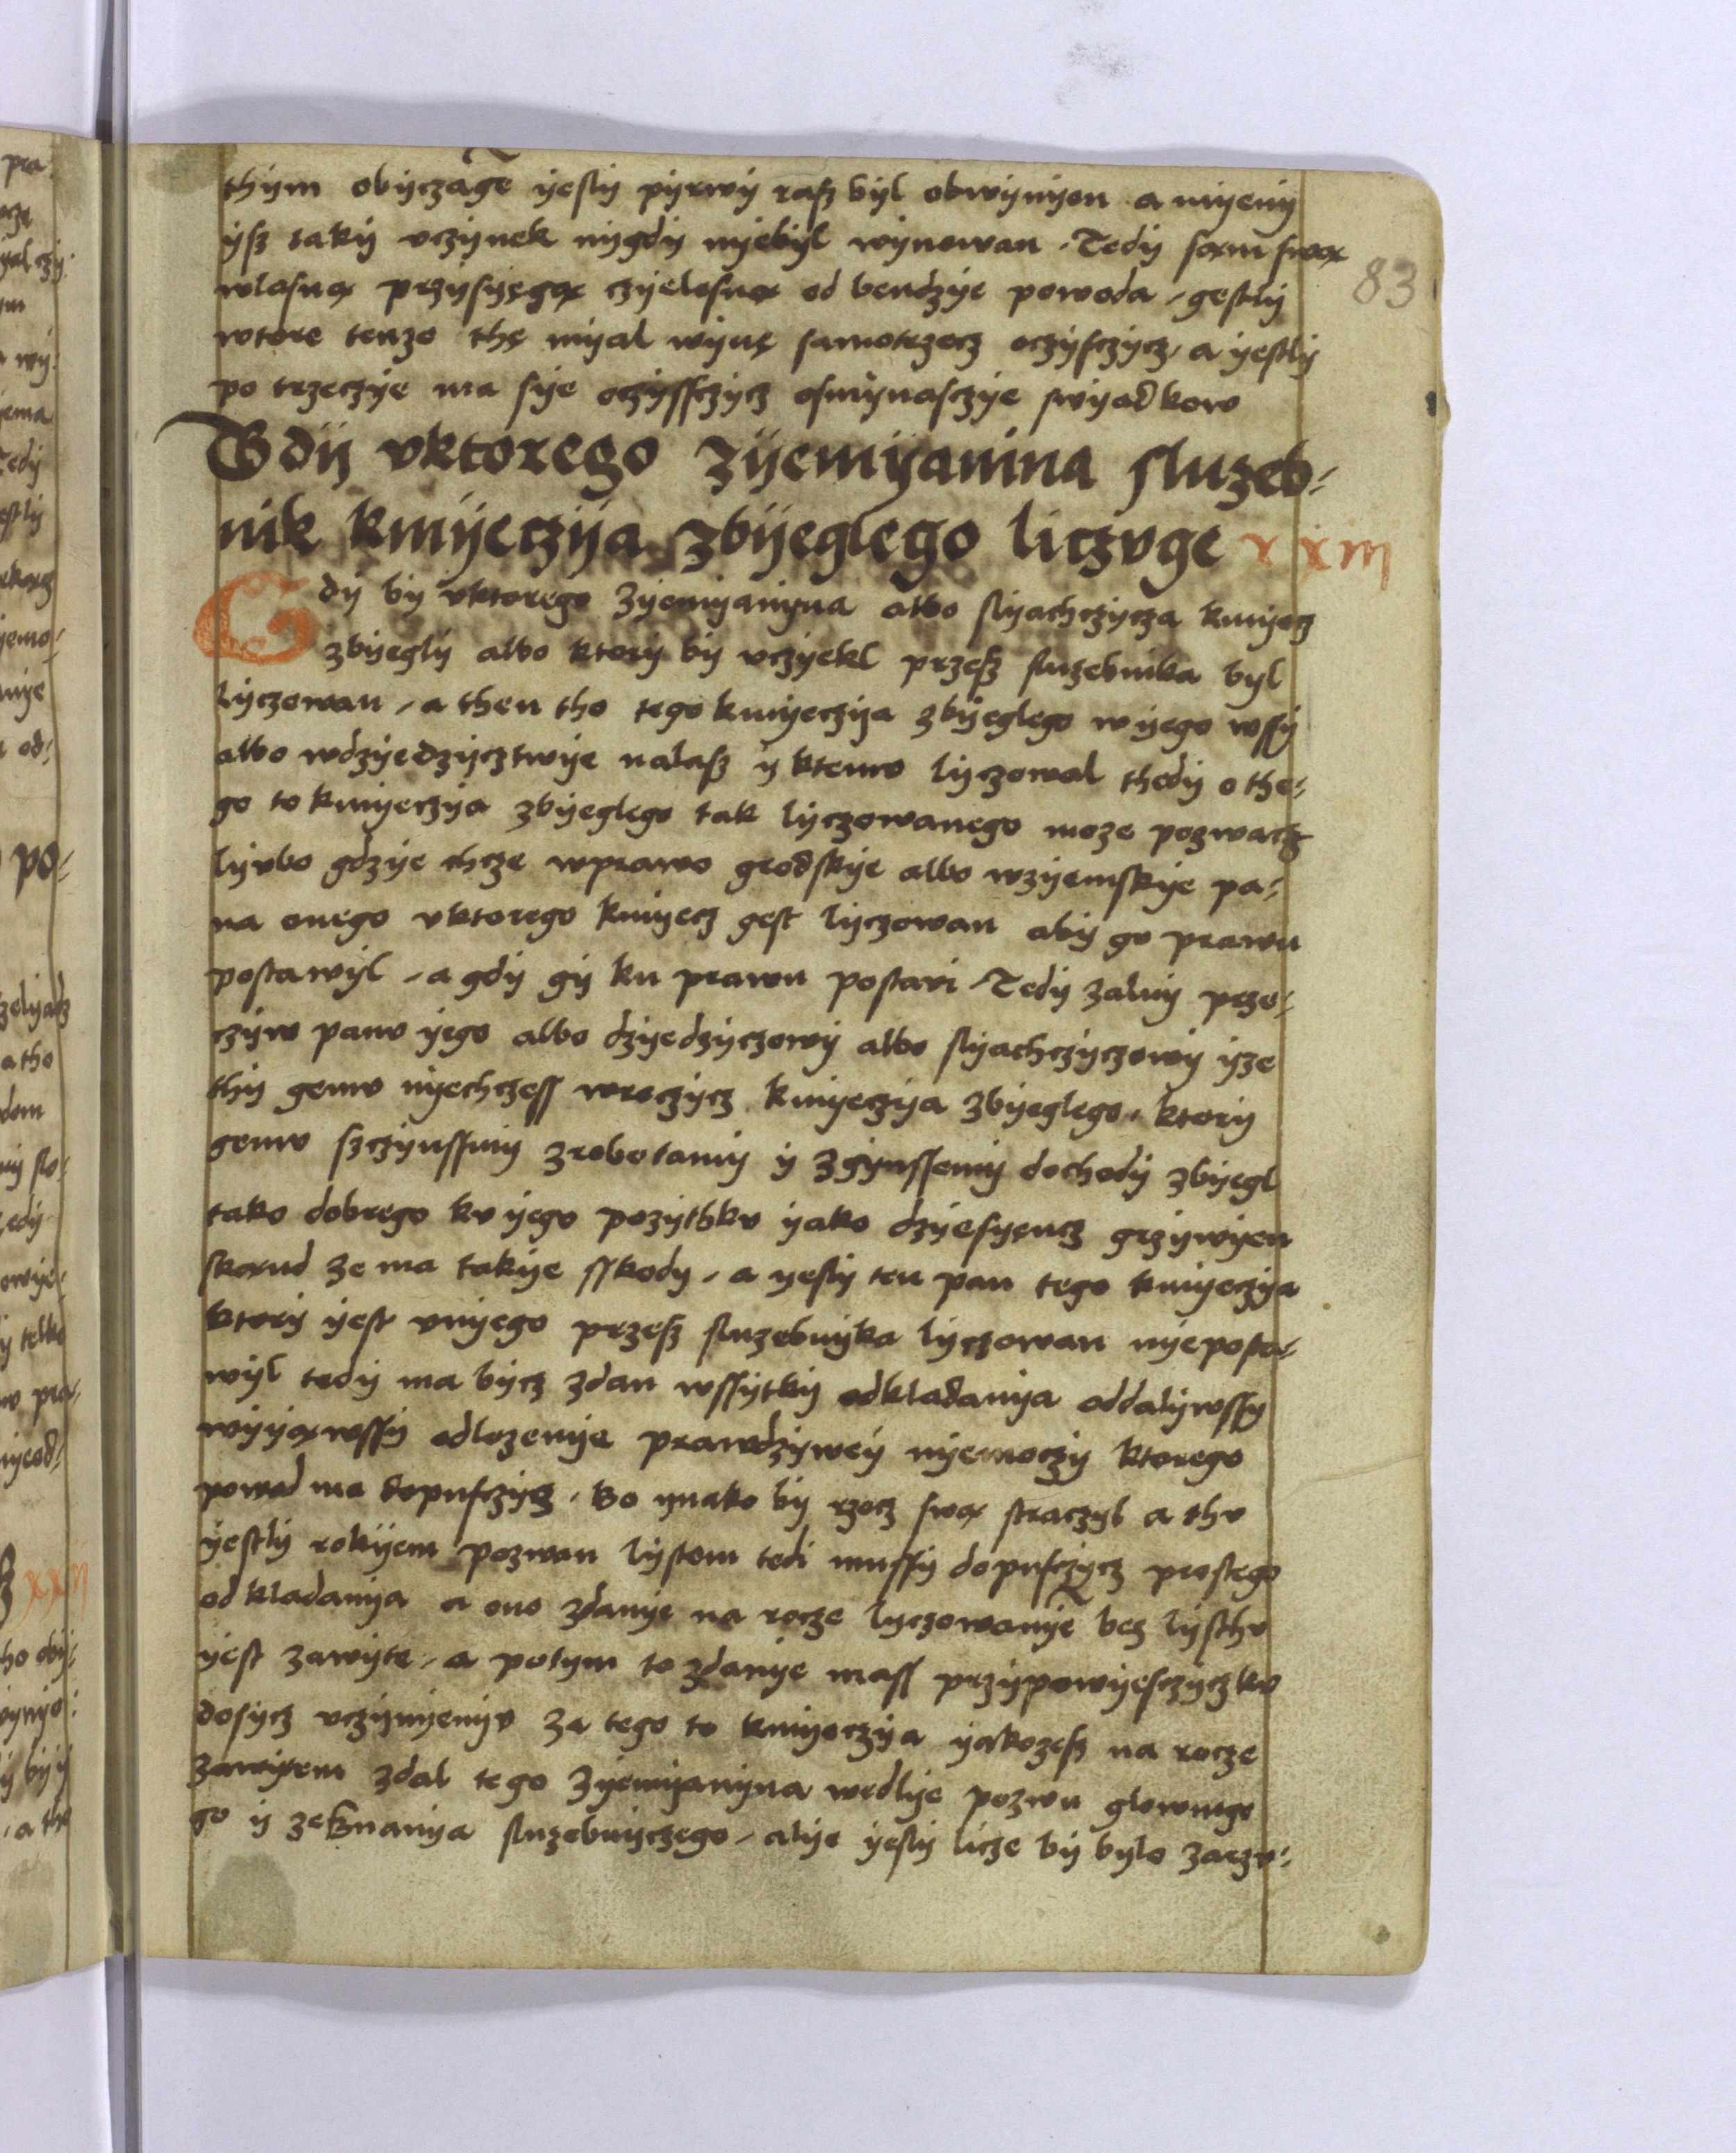 thym obyczage̅ yesly pyrwy raſz byl obwynyon a myeny
yſz taky vczynek nygdy nyebyl wynowan. Tedy ſam ſwą
wlaſną przyſyęgą czyeleſną od bendzye powoda, geſtly
wtore tenze thę myal wynę ſamotrzecz oczyſczycz, a yeſtly
po trzeczye ma ſye oczyſſczycz oſmynaſczye ſwyadkow
Gdy vktorego zyemyanina sluzeb⸗
nik kmyeczya zbyeglego liczvge xxiii
83
Gdy by vktorego zyemyanyna albo ſlyachczycza kmyecz
zbyegly albo ktory by vczyekl przeſz ſluzebnika byl
lyczowan, a then tho tego kmyeczya zbyeglego w yego wſſy
albo wdzyedzycztwye nalaſz y ktemv lyczowal thedy o the⸗
go to kmyeczya zbyeglego tak lyczowanego moze pozwacz
lyvbo gdzye chcze wprawo grodſkye albo wzyemſkye pa⸗
na onego vktorego kmyecz geſt lyczowan aby go prawu
poſtawyl, a gdy gy ku prawu poſtavi, Tedy zaluy prze⸗
czyw panv yego albo dzyedzyczowy albo ſlyachczyczowy yze
thy gemv nyechczeſſ wroczycz kmyeczya zbyeglego, ktory
gemv ſzczynſſmy zrobotamy y zgynſſemy dochody zbyegl
tako dobrego kv yego pozythkv yako dzyeſyęncz grzywyen
ſkąnd ze ma takye ſſkody, a yeſly ten pan tego kmyeczya
ktory yeſt vnyego przeſz ſluzebnyka lyczowan nyepoſta⸗
wyl tedy ma bycz zdan wſſytky odkladanya oddalywſſy
wyyąwſſy odlozenye prawdzywey nyemoczy ktorego
powod ma dopuſczycz. Bo ynako by rzecz ſwą ſtraczyl a thv
yeſtly rokyem pozwan lyſtem tedi muſſy dopuſczycz proſtego
odkladanya a ono zdanye na rocze lyczowanye̅ bez lyſthv
yeſt zawyte, a potym to zdanye maſſ przypowyeſczycz kv
doſycz vczynyenyv za tego to kmyeczya yakozeſz na rocze
zawytem zdal tego zyemyanyna wedlye pozwu glownego
go y zeznanya ſluzebnyczego, alye yeſly licze by bylo zarzv⸗